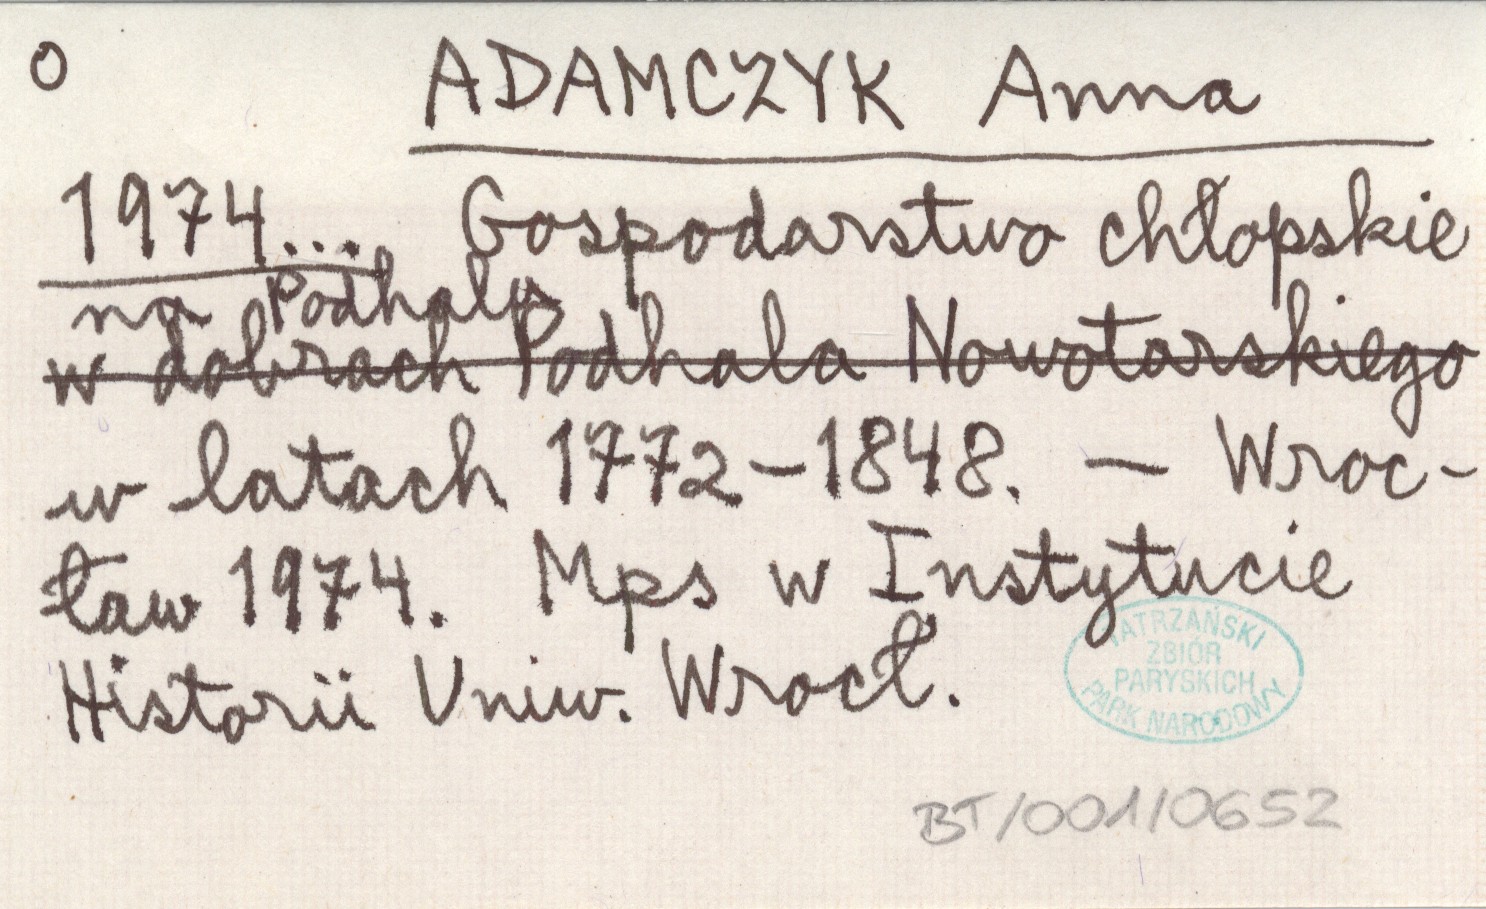 O
ADAMCZYK Anna
1974... Gospodarstwo chłopskie
na Podhalu
w dobrach Podhala Nowotarskiego
w latach 1772-1848. — Wroc-
ław 1974. Mps w Instytucie
Historii Uniw. Wrocł.
TATRZAŃSKI
ZBIÓR
PARYSKICH
PARK NARODOWY
BT/001/0652